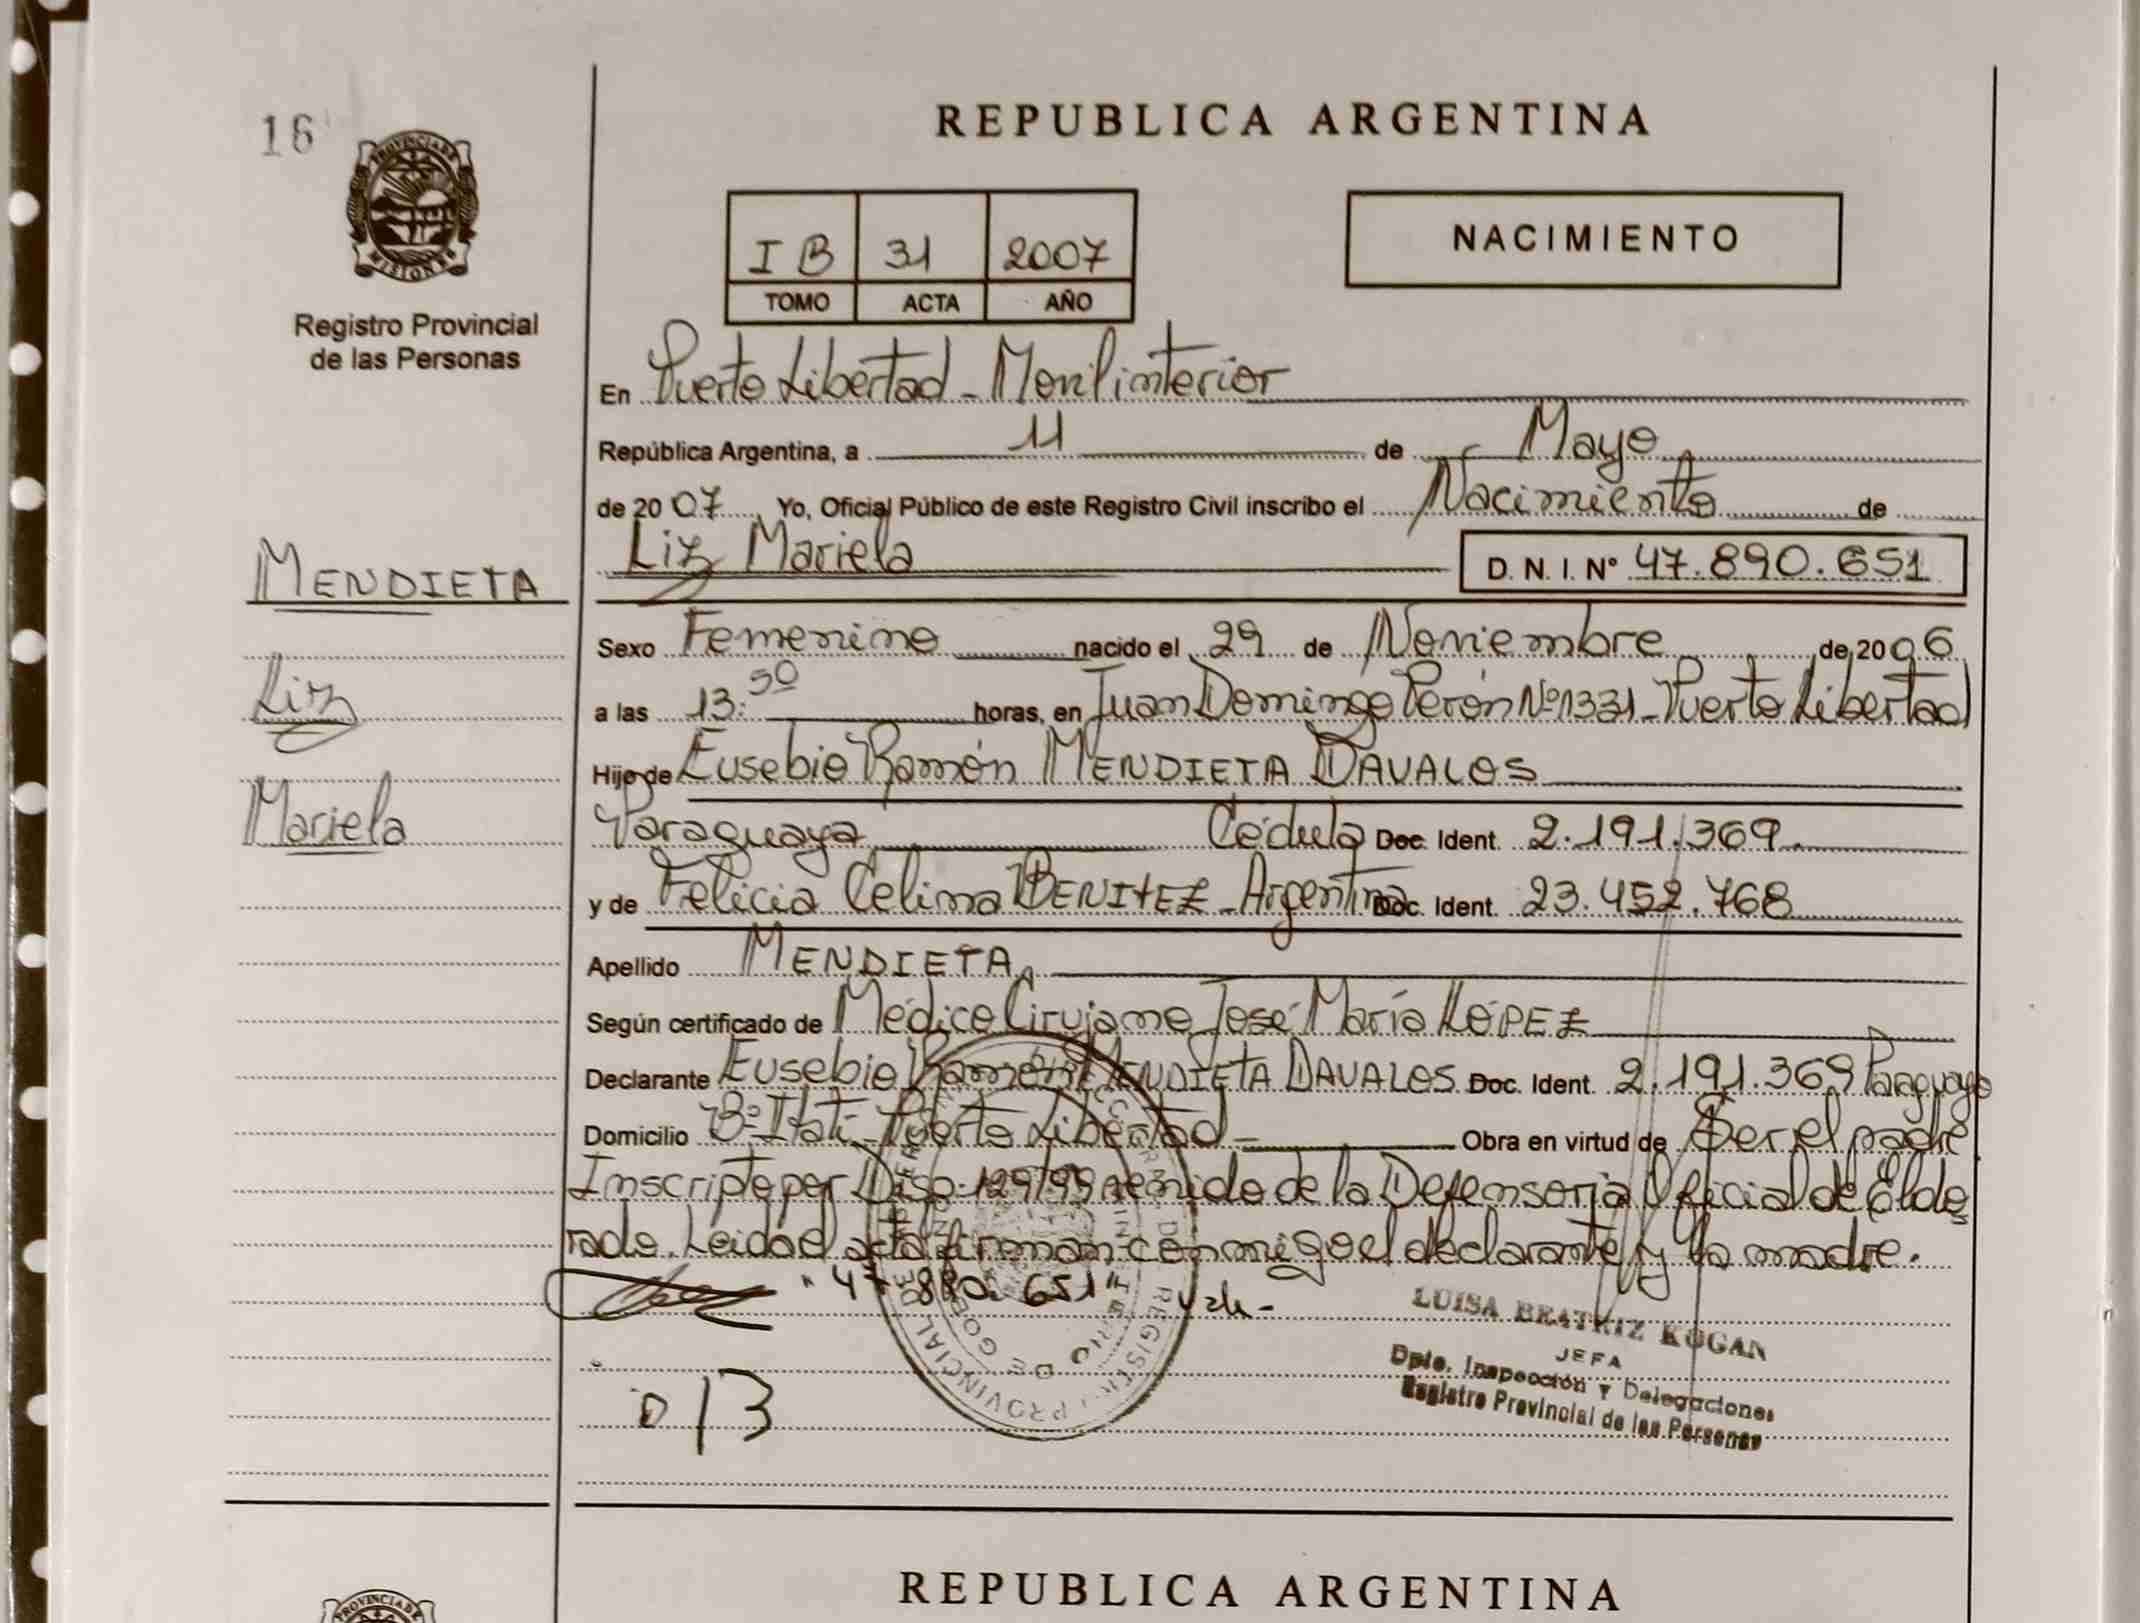 16
PROVINCIA DE
MISIONES
Registro Provincial
de las Personas
REPUBLICA ARGENTINA
I B 31 2007
TOMO ACTA AÑO
NACIMIENTO
En Puerto Libertad - Movil interior
República Argentina, a 11 de Mayo
de 2007 Yo, Oficial Público de este Registro Civil inscribo el Nacimiento de
Liz Mariela D. N. I. Nº 47.890.651
MENDIETA
Liz
Mariela
Sexo Femenino nacido el 29 de Noviembre de 2006
a las 13:50 horas, en Juan Domingo Perón Nº 1331 - Puerto Libertad
Hijo de Eusebio Ramón MENDIETA DAVALOS
Paraguaya Cédula Doc. Ident. 2.191.369.
y de Felicia Celina BENITEZ - Argentina Doc. Ident. 23.452.768
Apellido MENDIETA
Según certificado de Médico Cirujano José María LÓPEZ
Declarante Eusebio Ramón MENDIETA DAVALOS Doc. Ident. 2.191.369 Paraguayo
Domicilio Bº Itatí - Puerto Libertad - Obra en virtud de Ser el padre
Inscripto por Disp. 129/99 de la Defensoria Oficial de Eldo
rado. Leida el acta firman conmigo el declarante y la madre.
"47.890.651"
LUISA BEATRIZ KOGAN
JEFA
Dpto. Inspección y Delegaciones
Registro Provincial de las Personas
REPUBLICA ARGENTINA
PROVINCIA DE